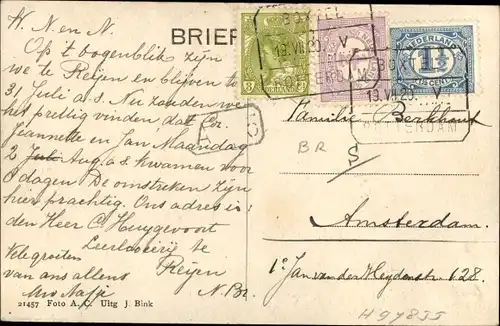 BRIEF
W. N. en N.
Op 't oogenblik zijn
we te Reijen en blijven tot
31 Juli a.s. Nu zouden we
het prettig vinden dat Cor.
Jeannette en Jan, Maandag
2 Aug. a.s. kwamen voor
8 dagen. De omstreken zijn
hier prachtig. Ons adres is:
den Heer C. Huijgevoort
Leerlooierij te
Reijen
N. Br.
Vele groeten
van ons allen
21457 Foto A. C. Uitg J. Bink
BOXTEL
19.VII.20. V
ROTTERDAM
NEDERLAND
1½
CENT
19.VII.20. V
AMSTERDAM
Familie Berkhout
BR
Amsterdam.
1e Jan van der Heydenstr 128.
H97855